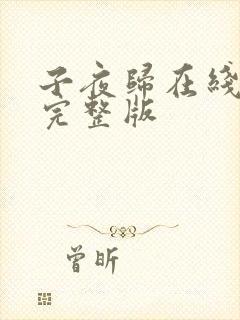 子夜歸在綫
完整版
曾昕